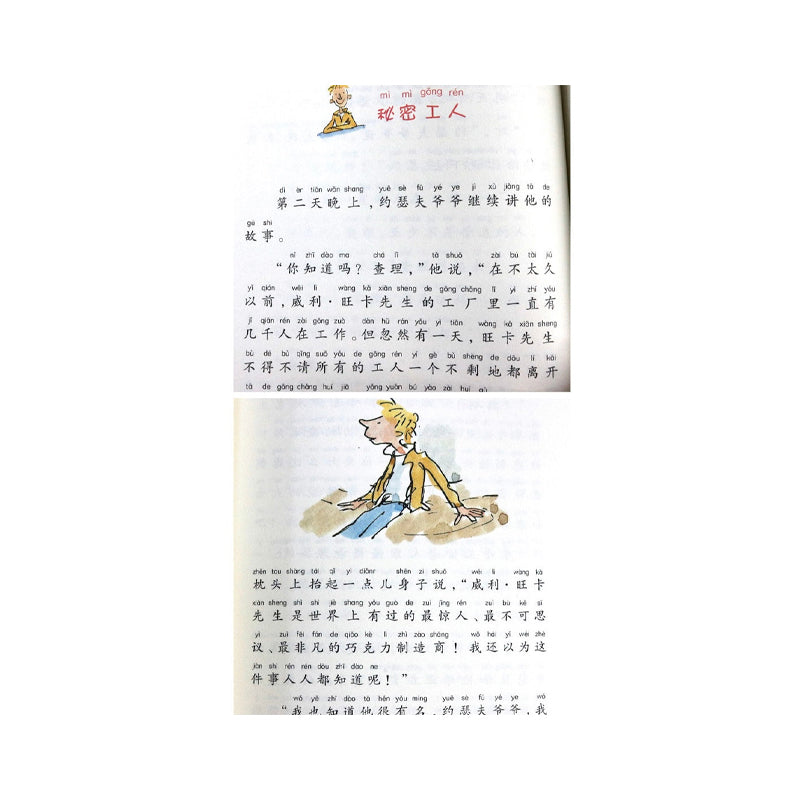 mì mì gōng rén
秘密工人
dì èr tiān wǎn shang yuē sè fū yé ye jì xù jiǎng tā de
第二天晚上，约瑟夫爷爷继续讲他的
gù shi
故事。
nǐ zhī dào ma chá lǐ tā shuō zài bú tài jiǔ
“你知道吗？查理，”他说，“在不太久
yǐ qián wēi lì wàng kǎ xiān sheng de gōng chǎng lǐ yì zhí yǒu
以前，威利·旺卡先生的工厂里一直有
jǐ qiān rén zài gōng zuò dàn hū rán yǒu yì tiān wàng kǎ xiān sheng
几千人在工作。但忽然有一天，旺卡先生
bù dé bù qǐng suǒ yǒu de gōng rén yí gè bú shèng de dōu lí kāi
不得不请所有的工人一个不剩地都离开
tā de gōng chǎng huí jiā yǒng yuǎn bú yào zài huí
zhěn tou shàng tái qǐ yì diǎnr shēn zi shuō wēi lì wàng kǎ
枕头上抬起一点儿身子说，“威利·旺卡
xiān sheng shì shì jiè shang yǒu guò de zuì jīng rén zuì bù kě sī
先生是世界上有过的最惊人、最不可思
yì zuì fēi fán de qiǎo kè lì zhì zào shāng wǒ hái yǐ wéi zhè
议、最非凡的巧克力制造商！我还以为这
jiàn shì rén rén dōu zhī dào ne
件事人人都知道呢！”
wǒ yě zhī dào tā hěn yǒu míng yuē sè fū yé ye wǒ
“我也知道他很有名，约瑟夫爷爷，我